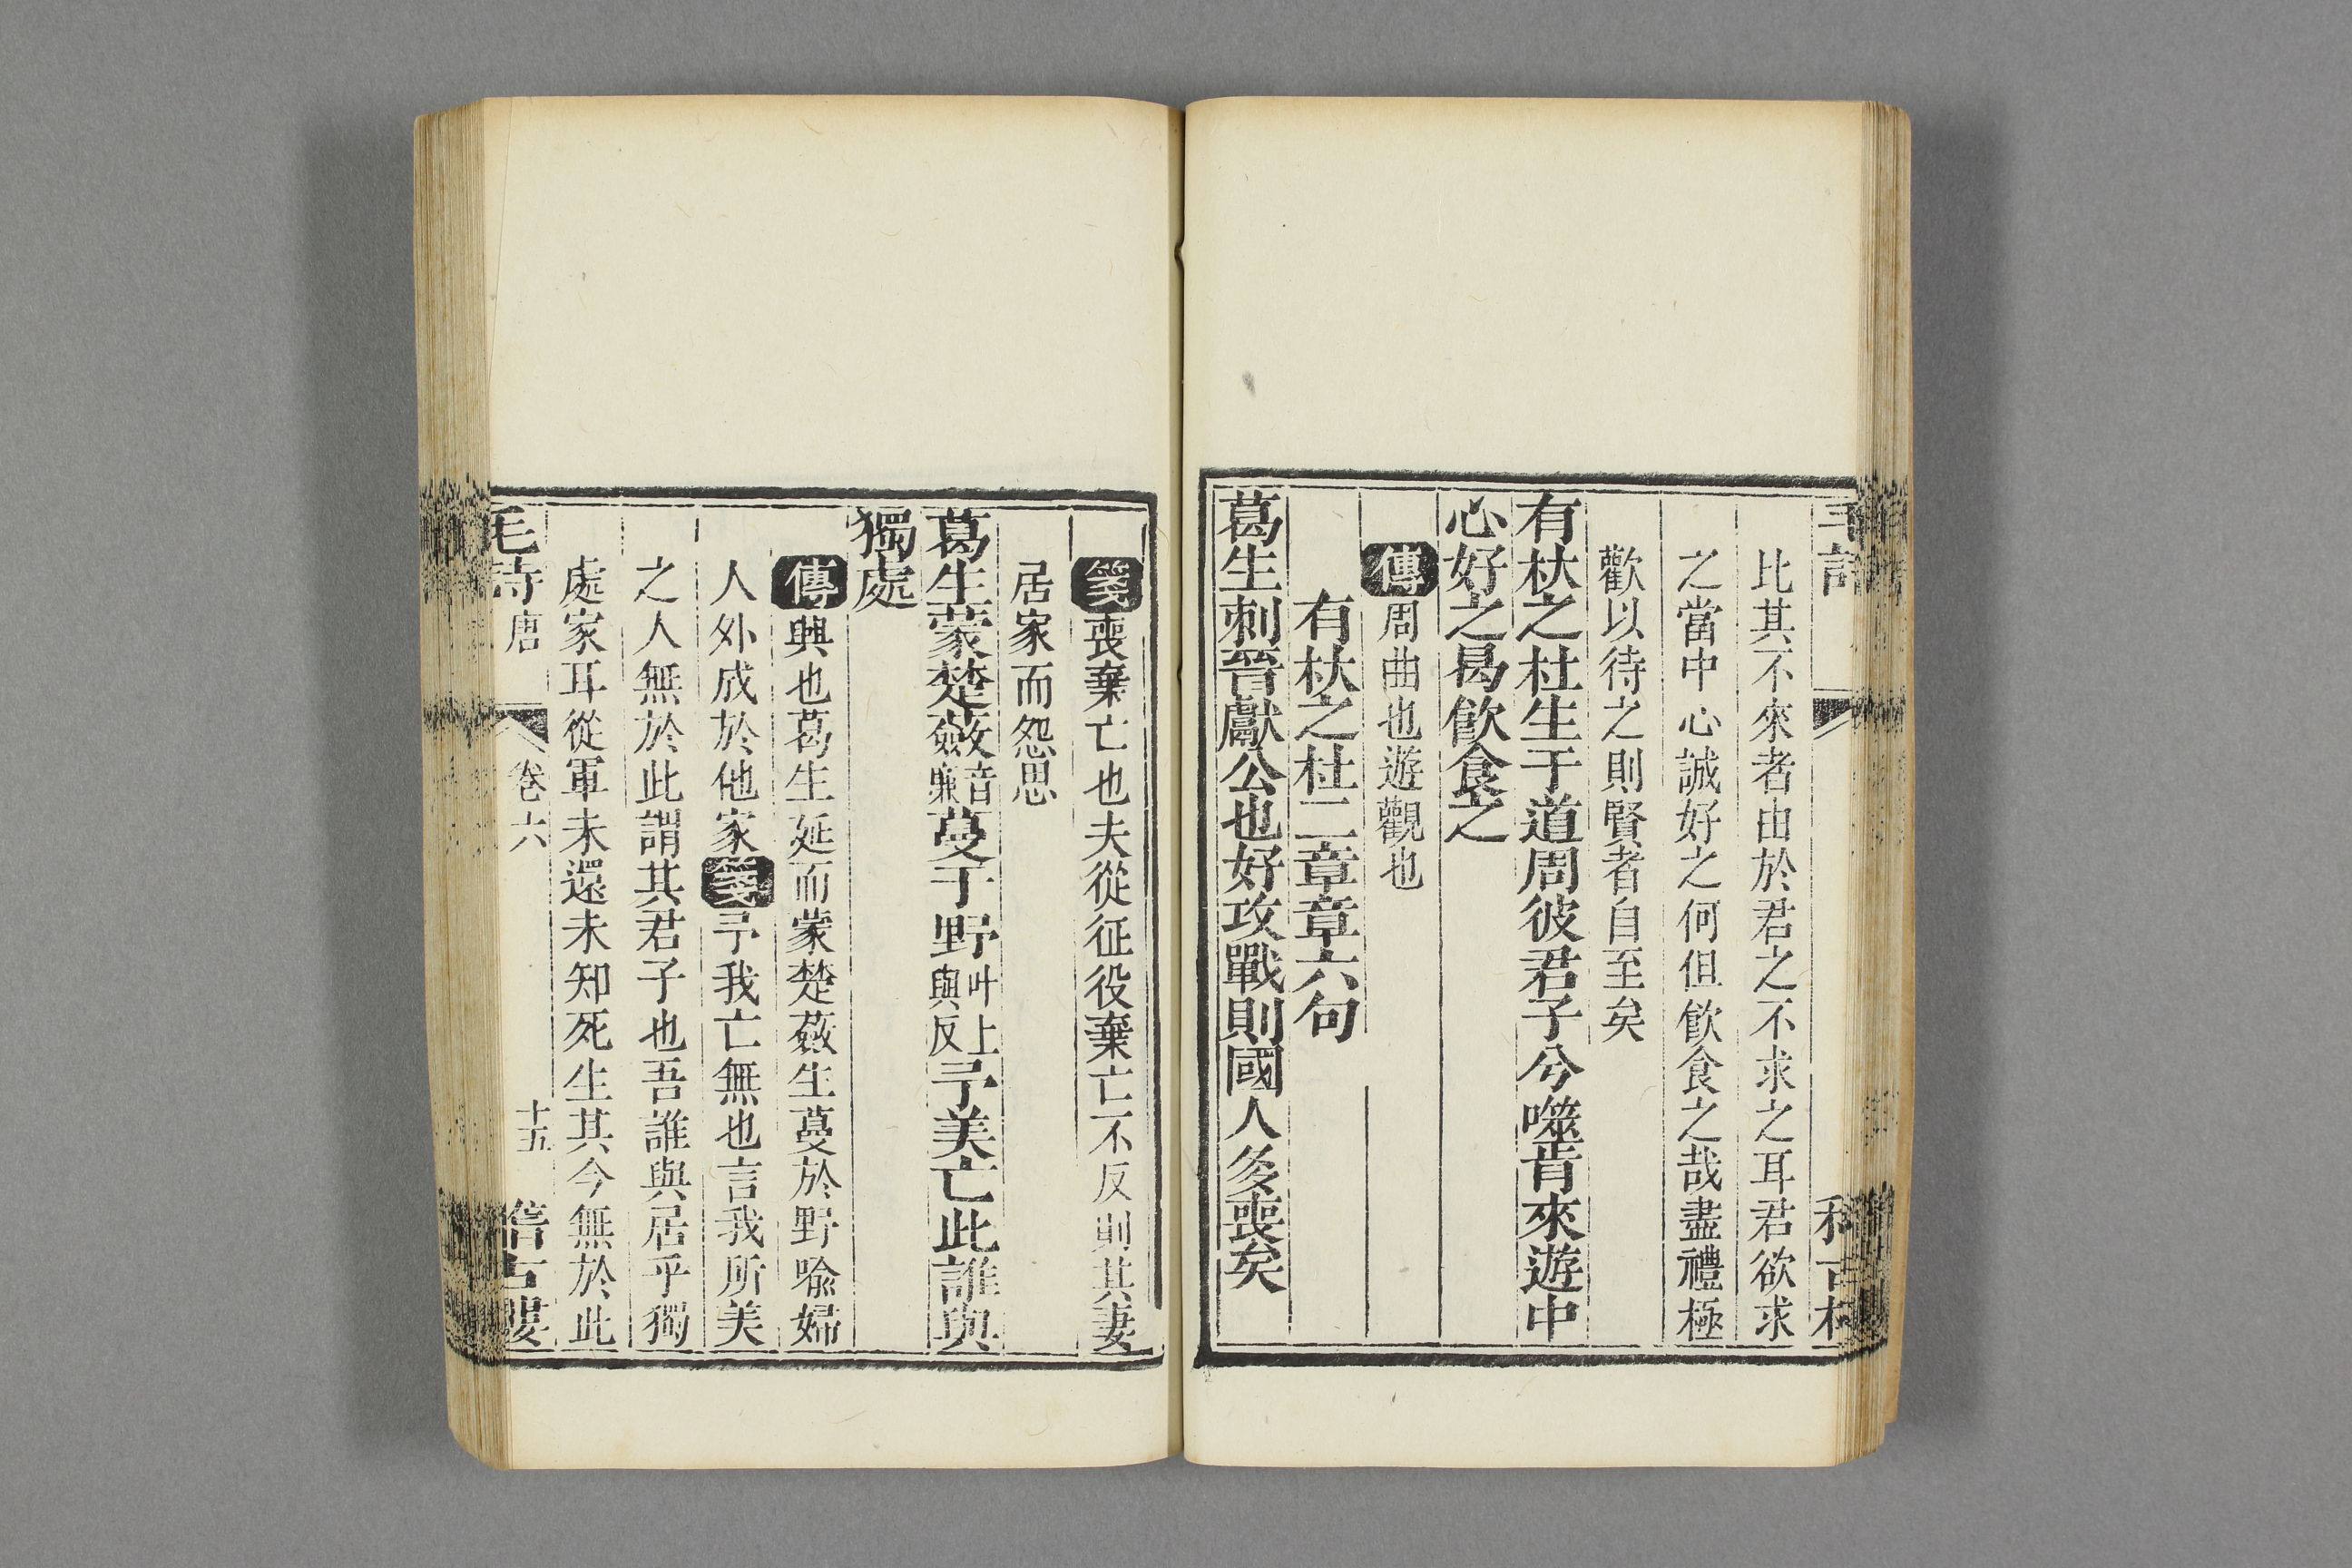 比其不來者由於君之不求之耳君欲求
之當中心誠好之何但飲食之哉盡禮極
歡以待之則賢者自至矣
有杕之杜生于道周彼君子兮噬肯來遊中
心好之曷飲食之
傳周曲也遊觀也
有杕之杜二章章六句
葛生刺晉獻公也好攻戰則國人多喪矣
箋喪棄亡也夫從征役棄亡不反則其妻
居家而怨思
葛生蒙楚蘞音廉蔓于野叶上與反予美亡此誰與
獨處
傳興也葛生延而蒙楚蘞生蔓於野喻婦
人外成於他家箋予我亡無也言我所美
之人無於此謂其君子也吾誰與居乎獨
處家耳從軍未還未知死生其今無於此
毛詩唐 卷六 十五 稽古樓